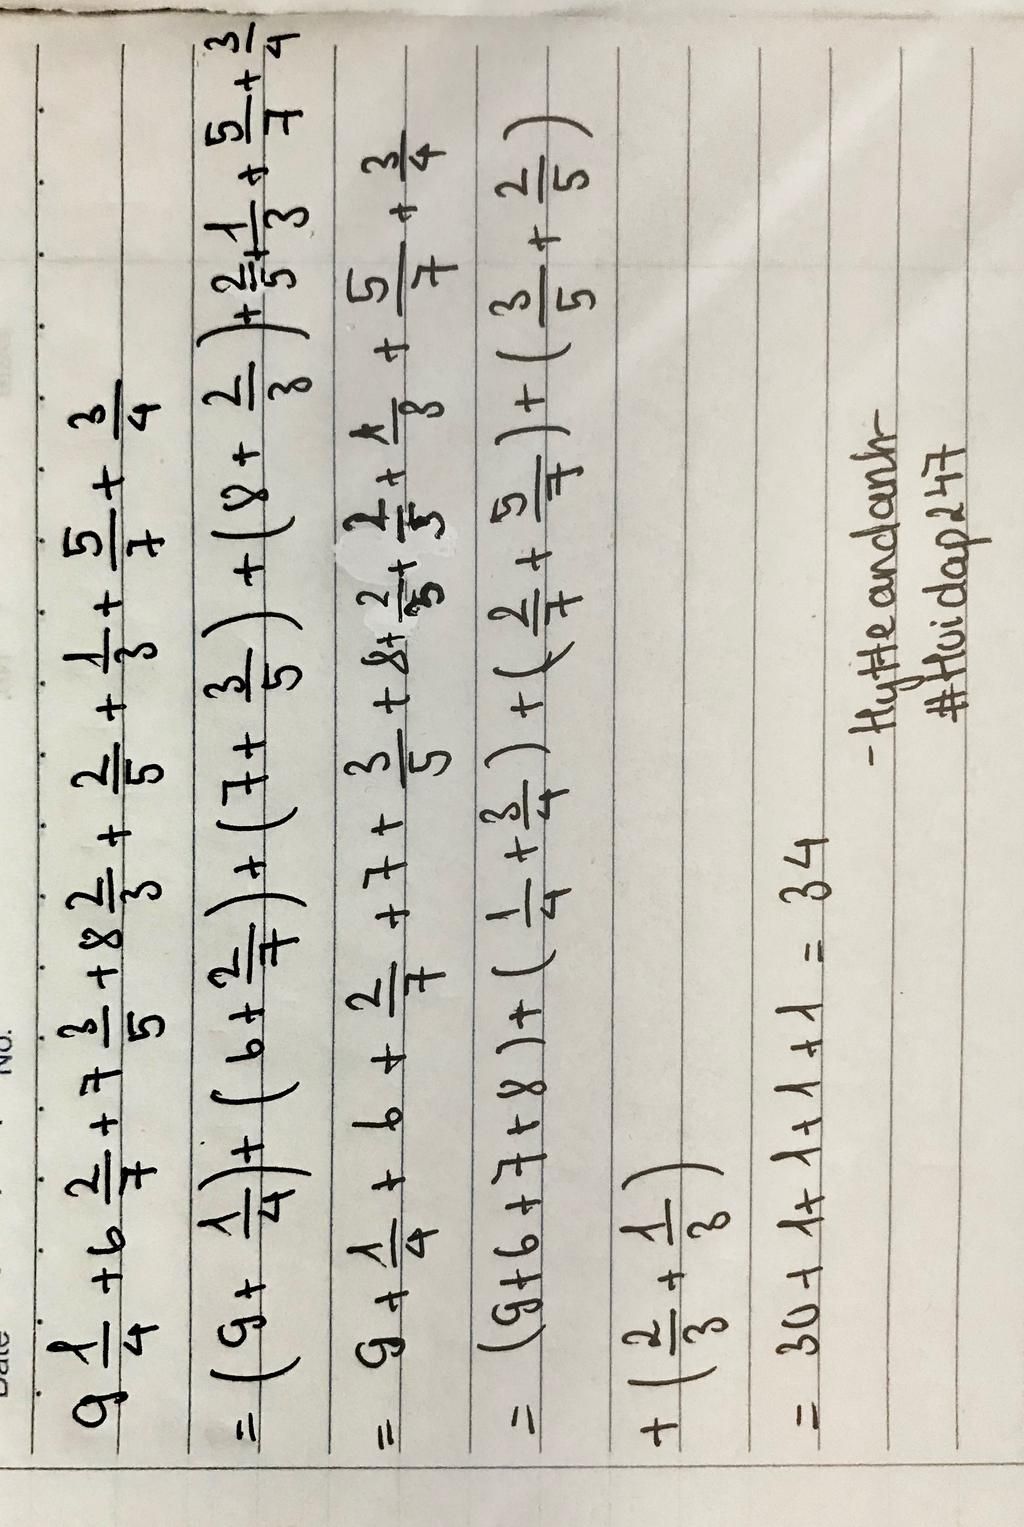 Date No.
9 1/4 + 6 2/7 + 7 3/5 + 8 2/3 + 2/5 + 1/3 + 5/7 + 3/4
= (9 + 1/4) + (6 + 2/7) + (7 + 3/5) + (8 + 2/3) + 2/5 + 1/3 + 5/7 + 3/4
= 9 + 1/4 + 6 + 2/7 + 7 + 3/5 + 8 + 2/3 + 2/5 + 1/3 + 5/7 + 3/4
= (9 + 6 + 7 + 8) + (1/4 + 3/4) + (2/7 + 5/7) + (3/5 + 2/5)
+ (2/3 + 1/3)
= 30 + 1 + 1 + 1 + 1 = 34
-Hytteandanh-
#Hoidap247